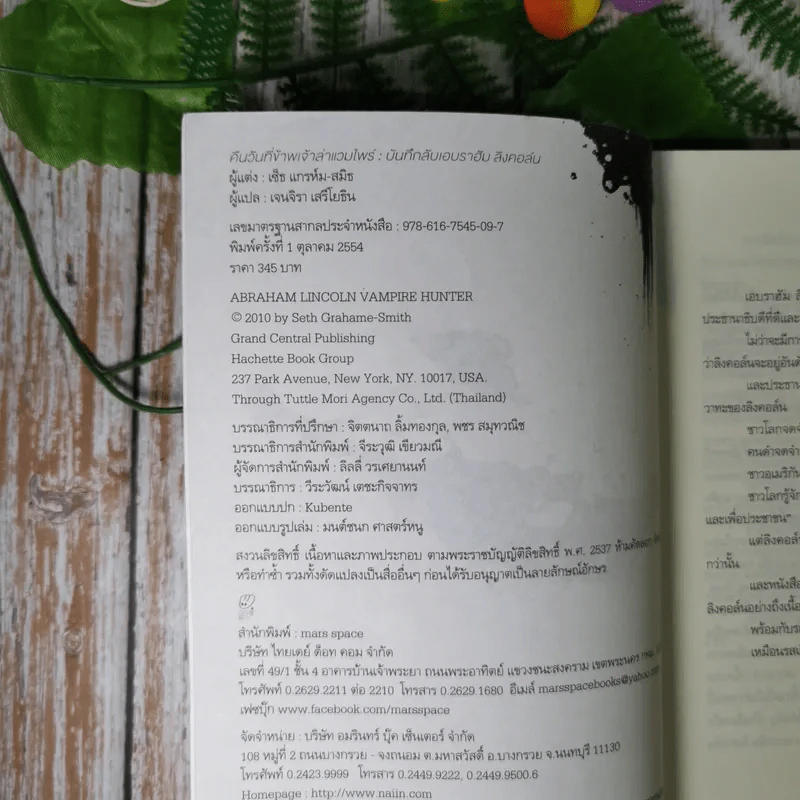 คืนวันที่ข้าพเจ้าล่าแวมไพร์ : บันทึกลับเอบราฮัม ลิงคอล์น
ผู้แต่ง : เซ็ธ แกรห์ม-สมิธ
ผู้แปล : เจนจิรา เสรีโยธิน
เลขมาตรฐานสากลประจำหนังสือ : 978-616-7545-09-7
พิมพ์ครั้งที่ 1 ตุลาคม 2554
ราคา 345 บาท
ABRAHAM LINCOLN VAMPIRE HUNTER
© 2010 by Seth Grahame-Smith
Grand Central Publishing
Hachette Book Group
237 Park Avenue, New York, NY. 10017, USA.
Through Tuttle Mori Agency Co., Ltd. (Thailand)
บรรณาธิการที่ปรึกษา : จิตตนาถ ลิ้มทองกุล, พชร สมุทวณิช
บรรณาธิการสำนักพิมพ์ : จีระวุฒิ เขียวมณี
ผู้จัดการสำนักพิมพ์ : ลิลลี่ วรเศยานนท์
บรรณาธิการ : วีระวัฒน์ เตชะกิจจาทร
ออกแบบปก : Kubente
ออกแบบรูปเล่ม : มนต์ชนก ศาสตร์หนู
สงวนลิขสิทธิ์ เนื้อหาและภาพประกอบ ตามพระราชบัญญัติลิขสิทธิ์ พ.ศ. 2537 ห้ามคัดลอก
หรือทำซ้ำ รวมทั้งดัดแปลงเป็นสื่ออื่นๆ ก่อนได้รับอนุญาตเป็นลายลักษณ์อักษร
สำนักพิมพ์ : mars space
บริษัท ไทยเดย์ ด็อท คอม จำกัด
เลขที่ 49/1 ชั้น 4 อาคารบ้านเจ้าพระยา ถนนพระอาทิตย์ แขวงชนะสงคราม เขตพระนคร กทม.
โทรศัพท์ 0.2629.2211 ต่อ 2210 โทรสาร 0.2629.1680 อีเมล์ marsspacebooks@yahoo.com
เฟซบุ๊ก www.facebook.com/marsspace
จัดจำหน่าย : บริษัท อมรินทร์ บุ๊ค เซ็นเตอร์ จำกัด
108 หมู่ที่ 2 ถนนบางกรวย - จงถนอม ต.มหาสวัสดิ์ อ.บางกรวย จ.นนทบุรี 11130
โทรศัพท์ 0.2423.9999 โทรสาร 0.2449.9222, 0.2449.9500.6
Homepage : http://www.naiin.com
เอบราฮัม
ประธานาธิบดีที่ดีและ
ไม่ว่าจะมีการ
ว่าลิงคอล์นจะอยู่อันดับ
และประธาน
วาทะของลิงคอล์น
ชาวโลกจดจำ
คนดำจดจำ
ชาวอเมริกัน
ชาวโลกรู้จัก
และเพื่อประชาชน"
แต่ลิงคอล์
กว่านั้น
และหนังสือ
ลิงคอล์นอย่างถึงเนื้อ
พร้อมกับ
เหมือนรส